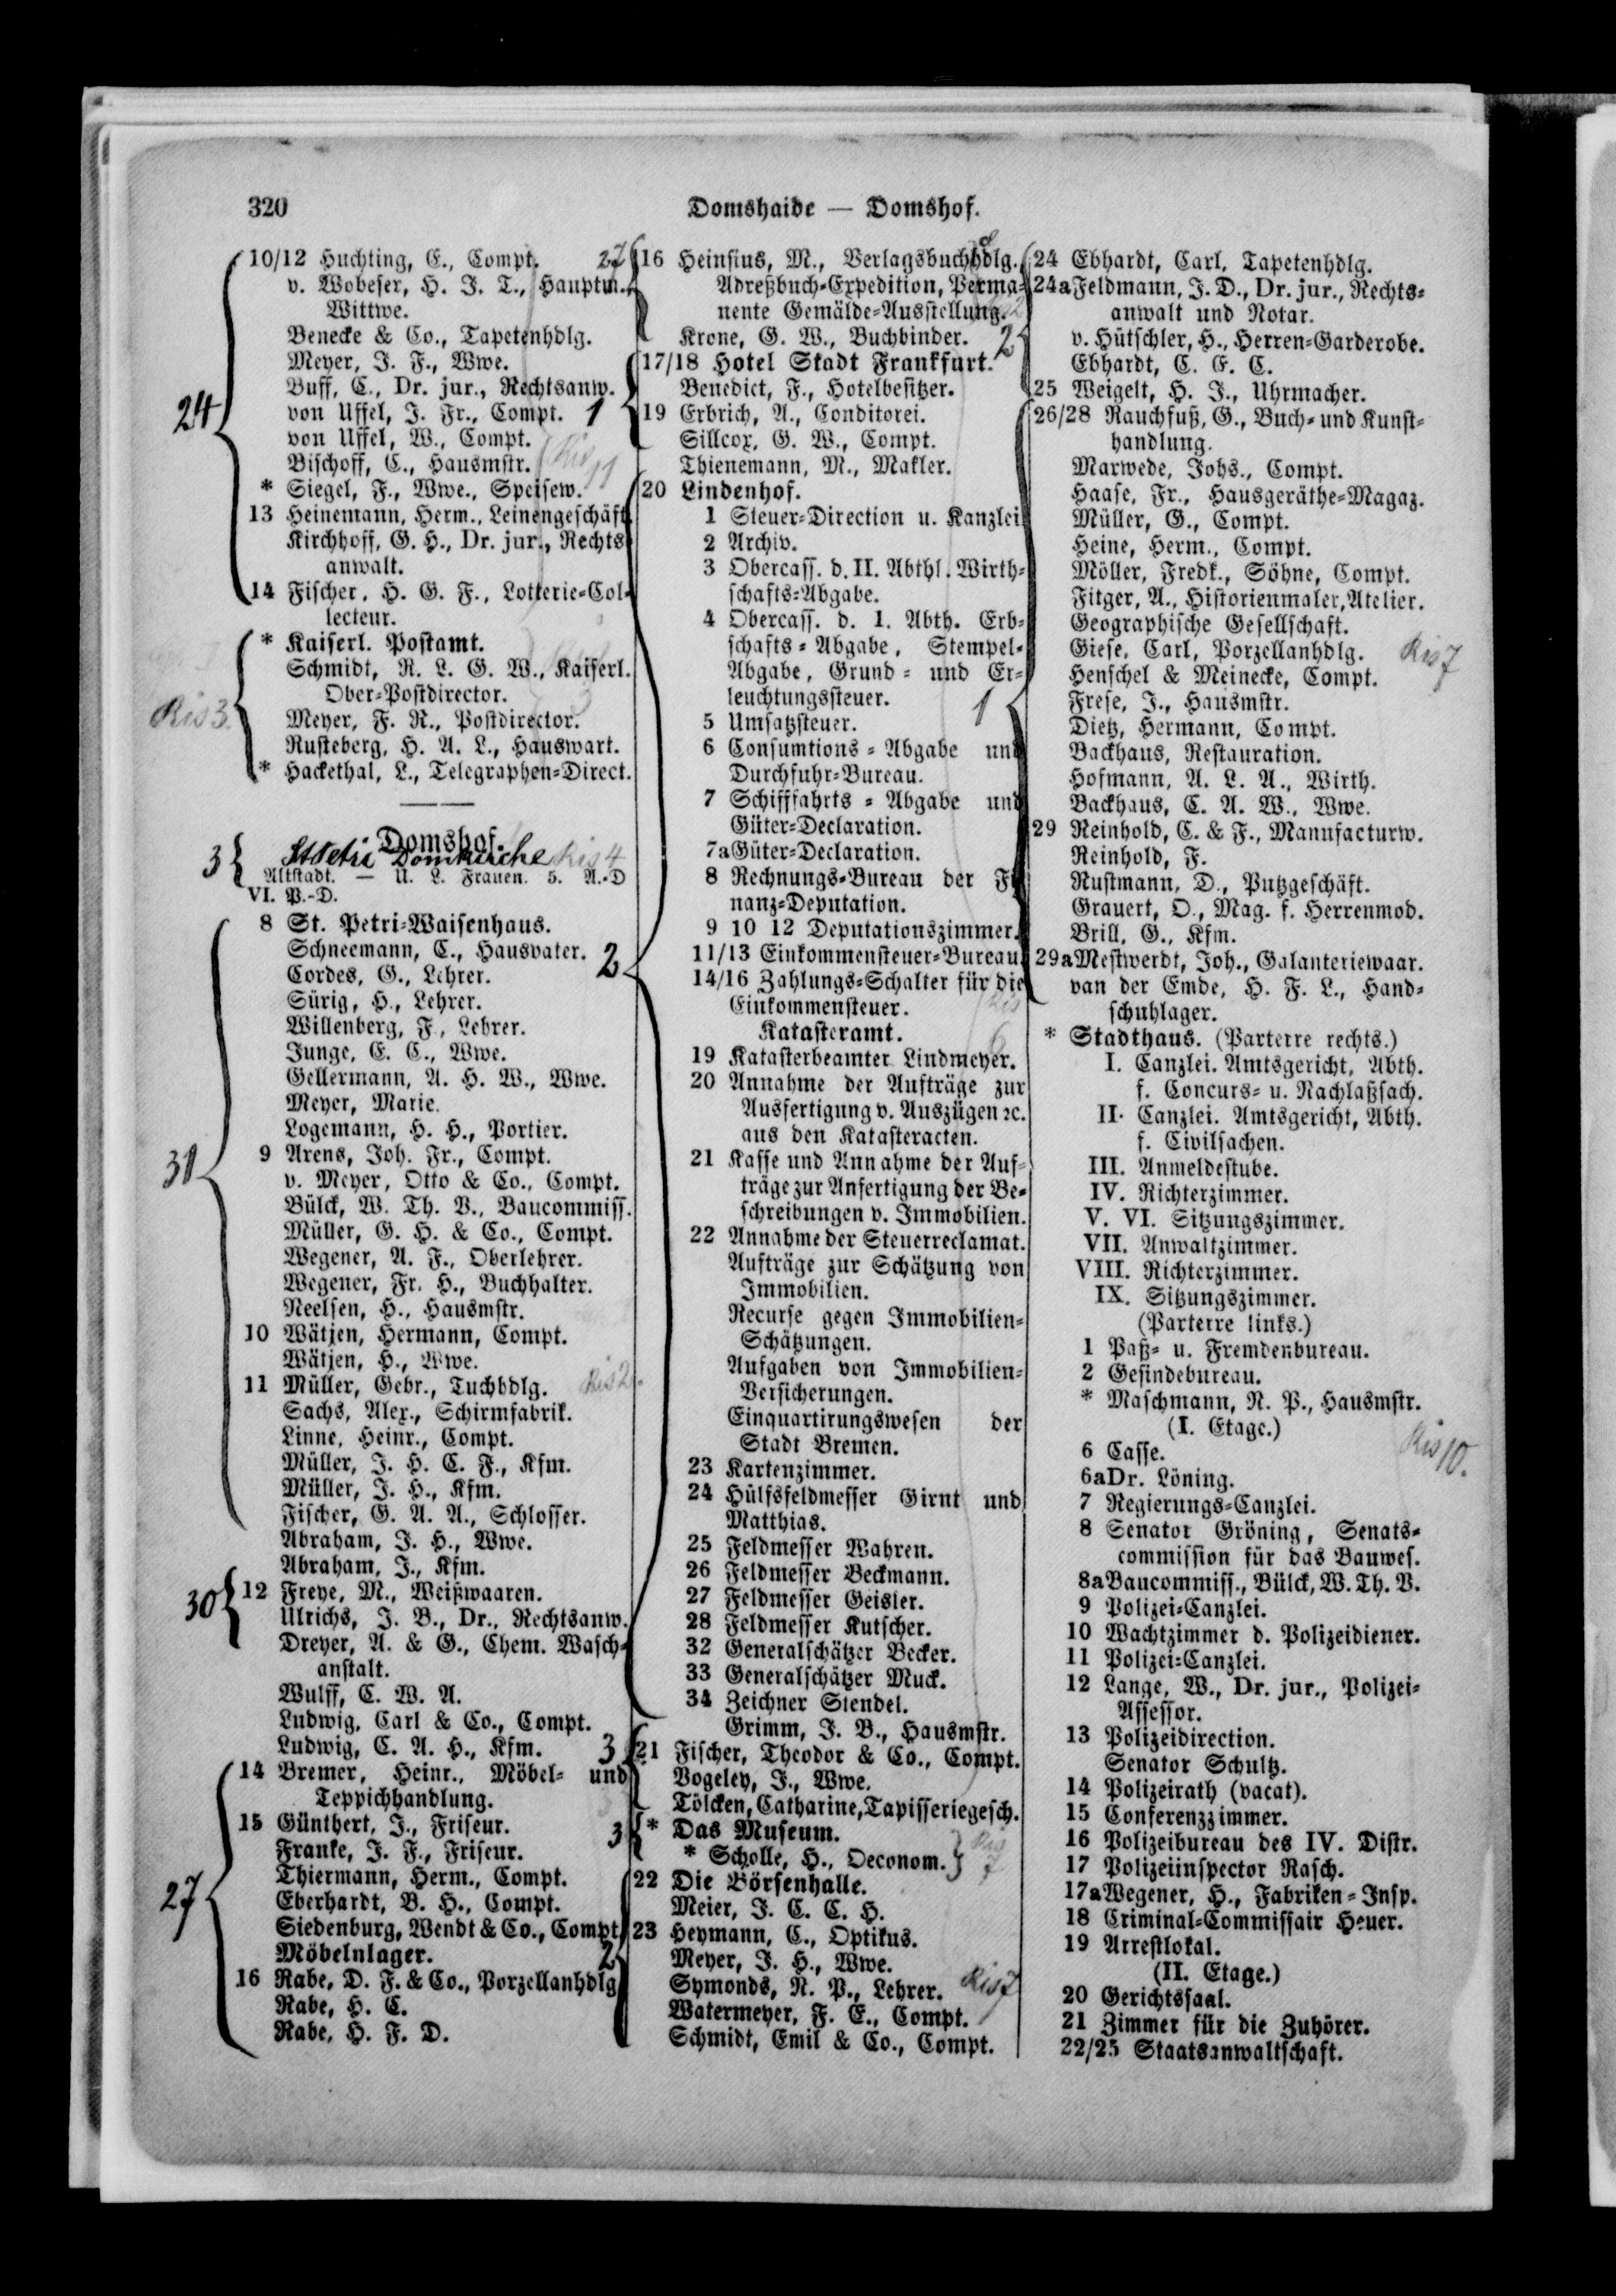 320
Domshaide — Domshof.
10/12 Huchting, E., Compt.
v. Wobeser, H. J. T., Hauptm.,
Wittwe.
Benecke & Co., Tapetenhdlg.
Meyer, J. F., Wwe.
Buff, C., Dr. jur., Rechtsanw.
von Uffel, J. Fr., Compt.
von Uffel, W., Compt.
24
Bischoff, C., Hausmstr.
* Siegel, F., Wwe., Speisew.
13 Heinemann, Herm., Leinengeschäft.
Kirchhoff, G. H., Dr. jur., Rechts-
anwalt.
14 Fischer, H. G. F., Lotterie-Col-
lecteur.
* Kaiserl. Postamt.
Schmidt, R. L. G. W., Kaiserl.
Ober-Postdirector.
Ris 3.
Meyer, F. R., Postdirector.
Rusteberg, H. A. L., Hauswart.
* Hackethal, L., Telegraphen-Direct.
Domshof.
3 St Petri Domkirche Ris 4
Altstadt. — U. L. Frauen. 5. A.-D
VI. P.-D.
8 St. Petri-Waisenhaus.
Schneemann, C., Hausvater.
Cordes, G., Lehrer.
Sürig, H., Lehrer.
Willenberg, F., Lehrer.
Junge, E. C., Wwe.
Gellermann, A. H. W., Wwe.
Meyer, Marie.
Logemann, H. H., Portier.
31
9 Arens, Joh. Fr., Compt.
v. Meyer, Otto & Co., Compt.
Bülck, W. Th. V., Baucommiss.
Müller, G. H. & Co., Compt.
Wegener, A. F., Oberlehrer.
Wegener, Fr. H., Buchhalter.
Neelsen, H., Hausmstr.
10 Wätjen, Hermann, Compt.
Wätjen, H., Wwe.
11 Müller, Gebr., Tuchhdlg. Ris 2.
Sachs, Alex., Schirmfabrik.
Linne, Heinr., Compt.
Müller, J. H. C. F., Kfm.
Müller, J. H., Kfm.
Fischer, G. A. A., Schlosser.
Abraham, J. H., Wwe.
Abraham, J., Kfm.
30
12 Freye, M., Weißwaaren.
Ulrichs, J. B., Dr., Rechtsanw.
Dreyer, A. & G., Chem. Wasch-
anstalt.
Wulff, C. W. A.
Ludwig, Carl & Co., Compt.
Ludwig, C. A. H., Kfm.
14 Bremer, Heinr., Möbel- und
Teppichhandlung.
15 Günthert, J., Friseur.
Franke, J. F., Friseur.
Thiermann, Herm., Compt.
27
Eberhardt, B. H., Compt.
Siedenburg, Wendt & Co., Compt.
Möbelnlager.
16 Rabe, D. F. & Co., Porzellanhdlg
Rabe, H. C.
Rabe, H. F. D.
27 16 Heinsius, M., Verlagsbuchhdlg.
Adreßbuch-Expedition, Perma-
nente Gemälde-Ausstellung.
Krone, G. W., Buchbinder.
17/18 Hotel Stadt Frankfurt.
Benedict, F., Hotelbesitzer.
1
19 Erbrich, A., Conditorei.
Sillcox, G. W., Compt.
Thienemann, M., Makler.
20 Lindenhof.
1 Steuer-Direction u. Kanzlei
2 Archiv.
3 Obercass. d. II. Abthl. Wirth-
schafts-Abgabe.
4 Obercass. d. 1. Abth. Erb-
schafts-Abgabe, Stempel-
Abgabe, Grund- und Er-
leuchtungssteuer.
5 Umsatzsteuer.
6 Consumtions-Abgabe und
Durchfuhr-Bureau.
7 Schifffahrts-Abgabe und
Güter-Declaration.
7a Güter-Declaration.
8 Rechnungs-Bureau der Fi
nanz-Deputation.
9 10 12 Deputationszimmer.
2
11/13 Einkommensteuer-Bureau
14/16 Zahlungs-Schalter für die
Einkommensteuer.
Katasteramt.
Ris 6
19 Katasterbeamter Lindmeyer.
20 Annahme der Aufträge zur
Ausfertigung v. Auszügen ꝛc.
aus den Katasteracten.
21 Kasse und Annahme der Auf-
träge zur Anfertigung der Be-
schreibungen v. Immobilien.
22 Annahme der Steuerreclamat.
Aufträge zur Schätzung von
Immobilien.
Recurse gegen Immobilien-
Schätzungen.
Aufgaben von Immobilien-
Versicherungen.
Einquartirungswesen der
Stadt Bremen.
23 Kartenzimmer.
24 Hülfsfeldmesser Girnt und
Matthias.
25 Feldmesser Wahren.
26 Feldmesser Beckmann.
27 Feldmesser Geisler.
28 Feldmesser Kutscher.
32 Generalschätzer Becker.
33 Generalschätzer Muck.
34 Zeichner Stendel.
Grimm, J. B., Hausmstr.
3 21 Fischer, Theodor & Co., Compt.
Vogeley, J., Wwe.
Tölcken, Catharine, Tapisseriegesch.
3 * Das Museum.
* Scholle, H., Oeconom. Ris 7
22 Die Börsenhalle.
Meier, J. C. C. H.
23 Heymann, C., Optikus.
2
Meyer, J. H., Wwe.
Symonds, N. P., Lehrer. Ris 7
Watermeyer, F. E., Compt.
Schmidt, Emil & Co., Compt.
24 Ebhardt, Carl, Tapetenhdlg.
24a Feldmann, J. D., Dr. jur., Rechts-
anwalt und Notar.
2
v. Hütschler, H., Herren-Garderobe.
Ebhardt, C. E. C.
25 Weigelt, H. J., Uhrmacher.
26/28 Rauchfuß, G., Buch- und Kunst-
handlung.
Marwede, Johs., Compt.
Haase, Fr., Hausgeräthe-Magaz.
Müller, G., Compt.
Heine, Herm., Compt.
Möller, Fredk., Söhne, Compt.
Fitger, A., Historienmaler, Atelier.
Geographische Gesellschaft.
Giese, Carl, Porzellanhdlg. Ris 7
Henschel & Meinecke, Compt.
Frese, J., Hausmstr.
1
Dietz, Hermann, Compt.
Backhaus, Restauration.
Hofmann, A. L. A., Wirth.
Backhaus, C. A. W., Wwe.
29 Reinhold, C. & F., Mannfacturw.
Reinhold, F.
Rustmann, D., Putzgeschäft.
Grauert, O., Mag. f. Herrenmod.
Brill, G., Kfm.
29a Mestwerdt, Joh., Galanteriewaar.
van der Emde, H. F. L., Hand-
schuhlager.
* Stadthaus. (Parterre rechts.)
I. Canzlei. Amtsgericht, Abth.
f. Concurs- u. Nachlaßsach.
II. Canzlei. Amtsgericht, Abth.
f. Civilsachen.
III. Anmeldestube.
IV. Richterzimmer.
V. VI. Sitzungszimmer.
VII. Anwaltzimmer.
VIII. Richterzimmer.
IX. Sitzungszimmer.
(Parterre links.)
1 Paß- u. Fremdenbureau.
2 Gesindebureau.
* Maschmann, N. P., Hausmstr.
(I. Etage.)
6 Casse. Ris 10.
6a Dr. Löning.
7 Regierungs-Canzlei.
8 Senator Gröning, Senats-
commission für das Bauwes.
8a Baucommiss., Bülck, W. Th. V.
9 Polizei-Canzlei.
10 Wachtzimmer d. Polizeidiener.
11 Polizei-Canzlei.
12 Lange, W., Dr. jur., Polizei-
Assessor.
13 Polizeidirection.
Senator Schultz.
14 Polizeirath (vacat).
15 Conferenzzimmer.
16 Polizeibureau des IV. Distr.
17 Polizeiinspector Rasch.
17a Wegener, H., Fabriken-Insp.
18 Criminal-Commissair Heuer.
19 Arrestlokal.
(II. Etage.)
20 Gerichtssaal.
21 Zimmer für die Zuhörer.
22/25 Staatsanwaltschaft.